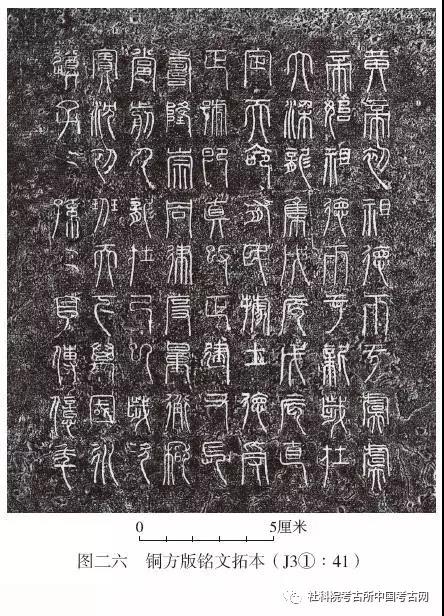 黄帝初祖德帀于虞虞
帝始祖德帀于新歲在
大梁龍集戊辰戊辰直
定天命有民據土德受
正號即真改正建丑長
壽隆崇同律度量衡稽
當前人龍在己巳歲次
實沈初班天下萬國永
遵子〻孫〻享傳億年
0 5厘米
图二六 铜方版铭文拓本（J3①：41）
社科院考古所中国考古网